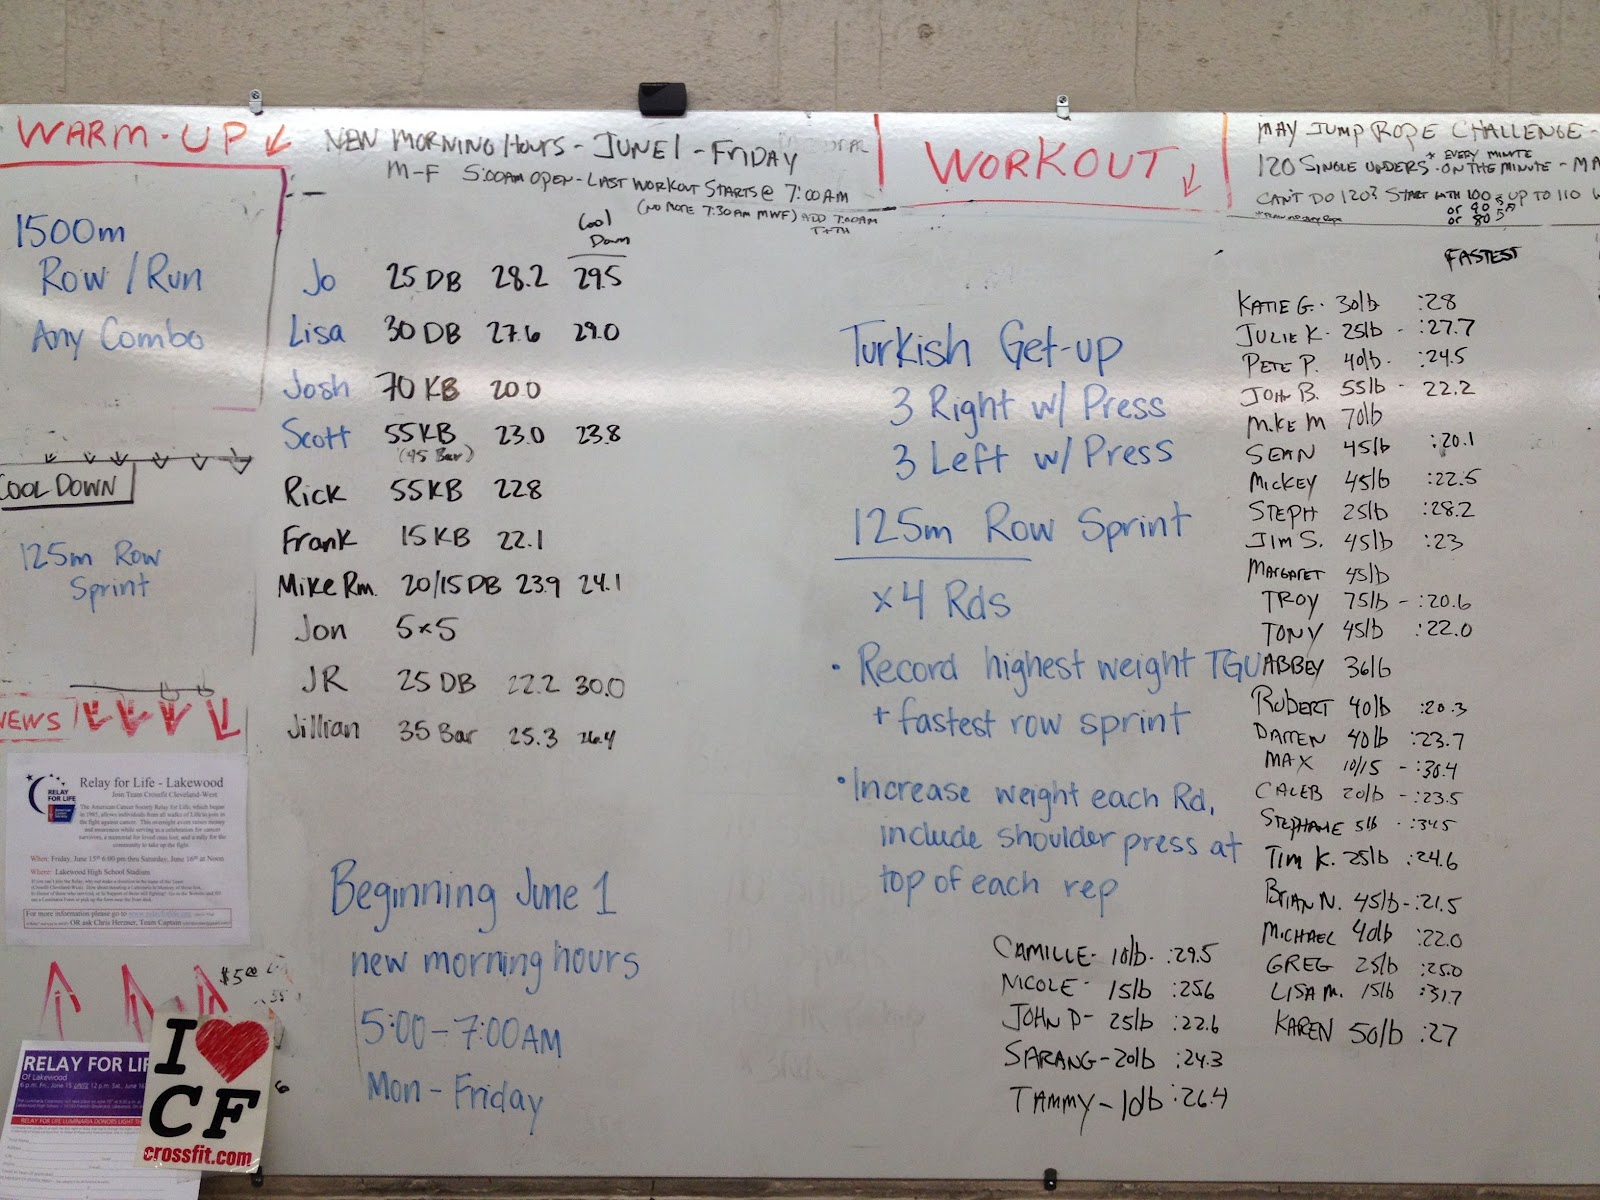 WARM-UP
1500m
Row / Run
Any Combo
COOL DOWN
125m Row
Sprint
NEWS
RELAY FOR LIFE
Relay for Life - Lakewood
Join Team Crossfit Cleveland-West
The American Cancer Society Relay for Life, which began
When: Friday, June 15th 6:00 pm thru Saturday, June 16th at Noon
Where: Lakewood High School Stadium
For more information please go to
OR ask Chris Herzner, Team Captain
$5@
RELAY FOR LIF
Of Lakewood
I
CF
crossfit.com
NEW MORNING HOURS - JUNE 1 - FRIDAY
M-F 5:00AM OPEN - LAST WORKOUT STARTS @ 7:00AM
(NO MORE 7:30AM MWF) ADD 7:00AM
T+TH
Cool
Down
Jo 25 DB 28.2 29.5
Lisa 30 DB 27.6 29.0
Josh 70 KB 20.0
Scott 55KB 23.0 23.8
(45 Bar)
Rick 55KB 22.8
Frank 15 KB 22.1
Mike Rm. 20/15 DB 23.9 24.1
Jon 5x5
JR 25 DB 22.2 30.0
Jillian 35 Bar 25.3 26.4
Beginning June 1
new morning hours
5:00-7:00AM
Mon - Friday
WORKOUT
Turkish Get-up
3 Right w/ Press
3 Left w/ Press
125m Row Sprint
x4 Rds
• Record highest weight TGU
+ fastest row sprint
• Increase weight each Rd,
include shoulder press at
top of each rep
CAMILLE - 10lb - :29.5
NICOLE - 15lb :25.6
JOHN D - 25lb :22.6
SARANG - 20lb :24.3
TAMMY - 10lb :26.4
MAY JUMP ROPE CHALLENGE -
120 SINGLE UNDERS* EVERY MINUTE
ON THE MINUTE - MA
CAN'T DO 120? START WITH 100 & UP TO 110
or 90
or 80
FASTEST
KATIE G. 30lb :28
JULIE K. 25lb - :27.7
PETE P. 40lb - :24.5
JOHN B. 55lb - 22.2
MIKE M 70lb
SEAN 45lb :20.1
MICKEY 45lb :22.5
STEPH 25lb :28.2
JIM S. 45lb :23
MARGARET 45lb
TROY 75lb - :20.6
TONY 45lb :22.0
ABBEY 36lb
ROBERT 40lb :20.3
DARREN 40lb :23.7
MAX 10/15 - :30.4
CALEB 20lb - :23.5
STEPHANIE 5lb - :34.5
TIM K. 25lb :24.6
BRIAN N. 45lb - :21.5
MICHAEL 40lb :22.0
GREG 25lb :25.0
LISA M. 15lb :31.7
KAREN 50lb :27